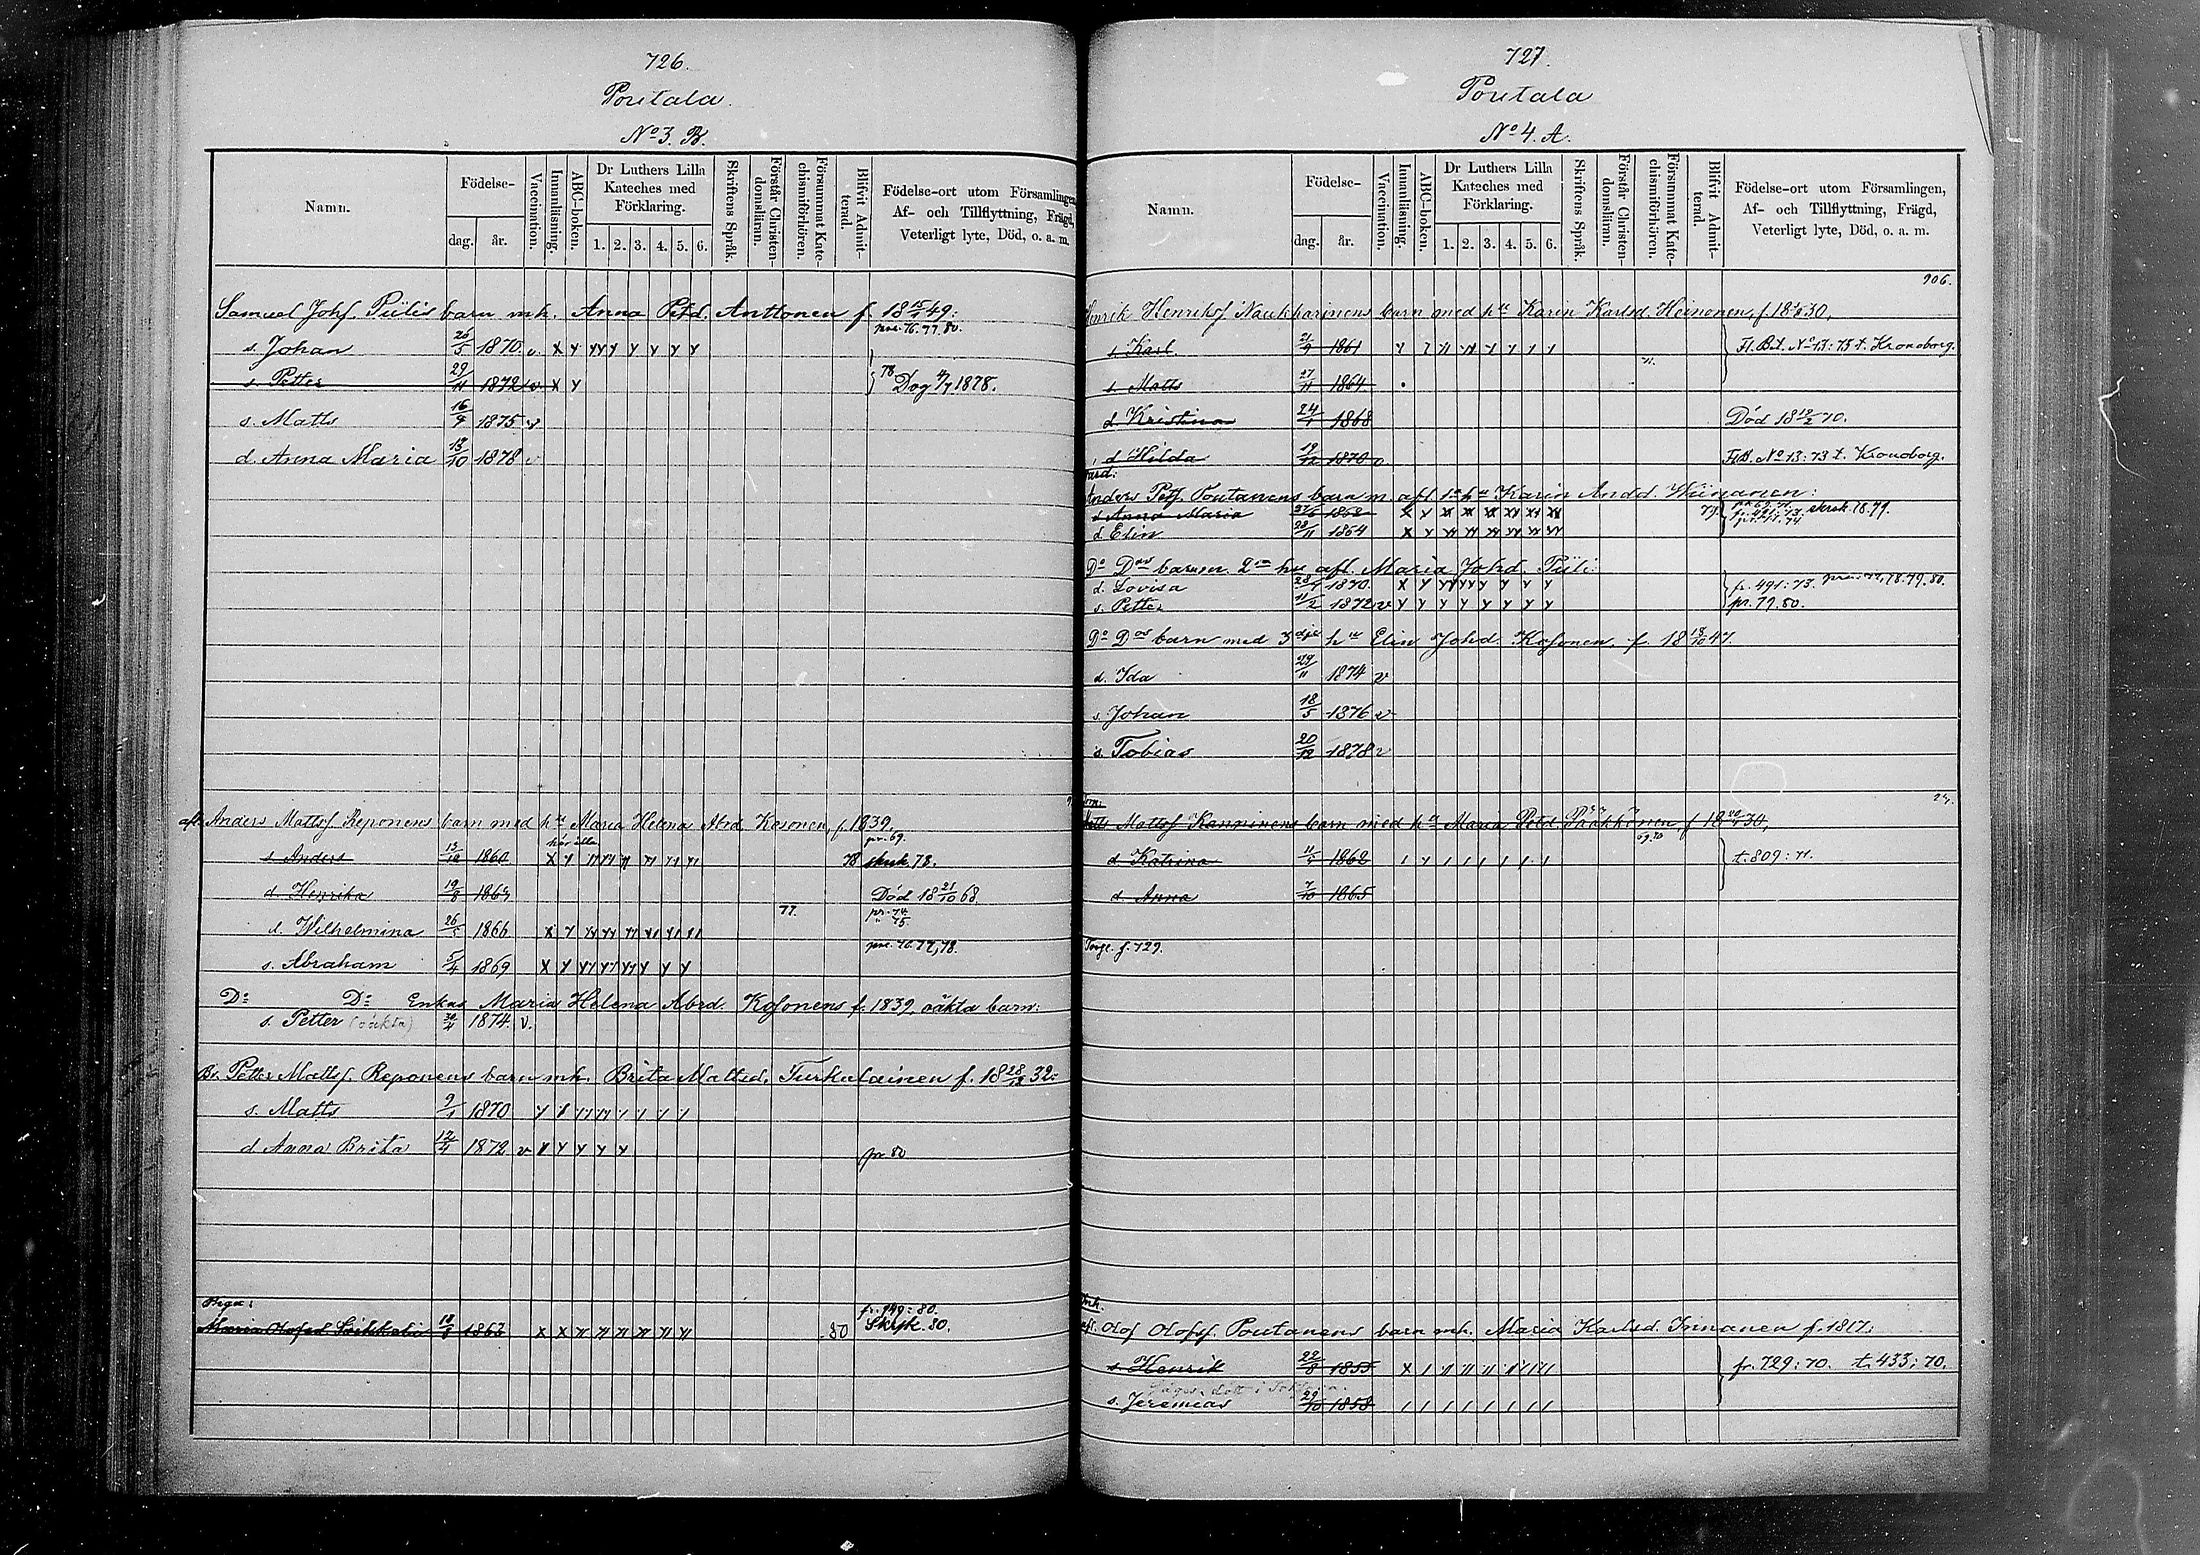 726.
Poutala.
No 3. B.
Namn.
Födelse-
dag. år.
Vaccination.
Innanläsning.
ABC-boken.
Dr Luthers Lilla
Kateches med
Förklaring.
1. 2. 3. 4. 5. 6.
Skriftens Språk.
Förstår Christen-
domsläran.
Försummat Kate-
chismiförhören.
Blifvit Admit-
terad.
Födelse-ort utom Församlingen,
Af- och Tillflyttning, Frägd,
Veterligt lyte, Död, o. a. m.
Samuel Johs. Piilis barn mh. Anna Petd. Anttonen f. 18 15/ 49:
s. Johan 26/5 1870. v. x y yy y y y y y pre. 76. 77. 80.
s. Petter 29/11 1872 v x y 78 Dog 1878.
s. Matts 16/9 1875 v
d. Anna Maria 13/10 1878 v
afl. Anders Mattsf. Reponens barn med hu Maria Helena Abrd. Kosonen, f. 1839.
s. Anders 13/10 1860 78 pr. 69. skrsk 78.
d. Henrika 19/8 1864 Död 18 21/10 68.
d. Wilhelmina 26/5 1866 77. pr. 74 75.
s. Abraham 5/4 1869 pre. 76. 77, 78.
Do Do Enkas Maria Helena Abrd. Kosonens f. 1839 oäkta barn:
s. Petter (oäkta) 30/4 1874. v.
Br. Petter Mattsf. Reponens barn mh. Brita Mattsd. Turkulainen f. 18 28/12 32:
s. Matts 9/1 1870
d Anna Brita 12/4 1872 v pr 80
Piga:
Maria Olofsd 18/8 1863 80 fr. 949: 80. Skrsk. 80.
727.
Poutala
No 4. A.
Namn.
Födelse-
dag. år.
Vaccination.
Innanläsning.
ABC-boken.
Dr Luthers Lilla
Kateches med
Förklaring.
1. 2. 3. 4. 5. 6.
Skriftens Språk.
Förstår Christen-
domsläran.
Försummat Kate-
chismiförhören.
Blifvit Admit-
terad.
Födelse-ort utom Församlingen,
Af- och Tillflyttning, Frägd,
Veterligt lyte, Död, o. a. m.
906.
Henrik Henriksf Naukkarinens barn med hu Karin Karlsd. Heinonen, f. 18 30,
s. Karl 21/9 1861 Fl. Bet. No 13: 73 t. Kronoborg.
s. Matts 27/11 1864
d. Kristina 24/1 1868 Död 18 12/2 70.
d Hilda 19/12 1870 v FlB. No 13: 73 t. Kronoborg.
Anders Petf. Poutanens barn m. afl. 1a hu Karin Andd. Wiinanen:
d Anna Maria 27/6 1862 79. skrsk. 78.79.
d. Elin 28/11 1864
Do Dos barn m. 2ra hu afl. Maria Johd Piili:
d. Lovisa 28/ 1870. fr. 491: 73. 78. 79. 80.
s. Petter 11/2 1872 v pr. 79. 80.
Do Dos barn med 3dje hu Elin Johd. Kosonen, f. 18 18/10 47.
d. Ida 29/11 1874 v
s. Johan 18/5 1876 v
s. Tobias 20/12 1878 v
Torp:
Mattsf Kauppinens barn med hu Maria Petd. Pääkkönen, f 18 30,
d Katrina 11/ 1862 69.70 t. 809: 71.
d. Anna 7/10 1865
Torge. f. 729.
Inh.
afl. Olof Olofsf. Poutanens barn mh. Maria Karlsd. Innanen f. 1817:
s. Henrik 22/8 1855 fr. 729: 70. t. 433: 70.
s. Jeremias 29/10 1858